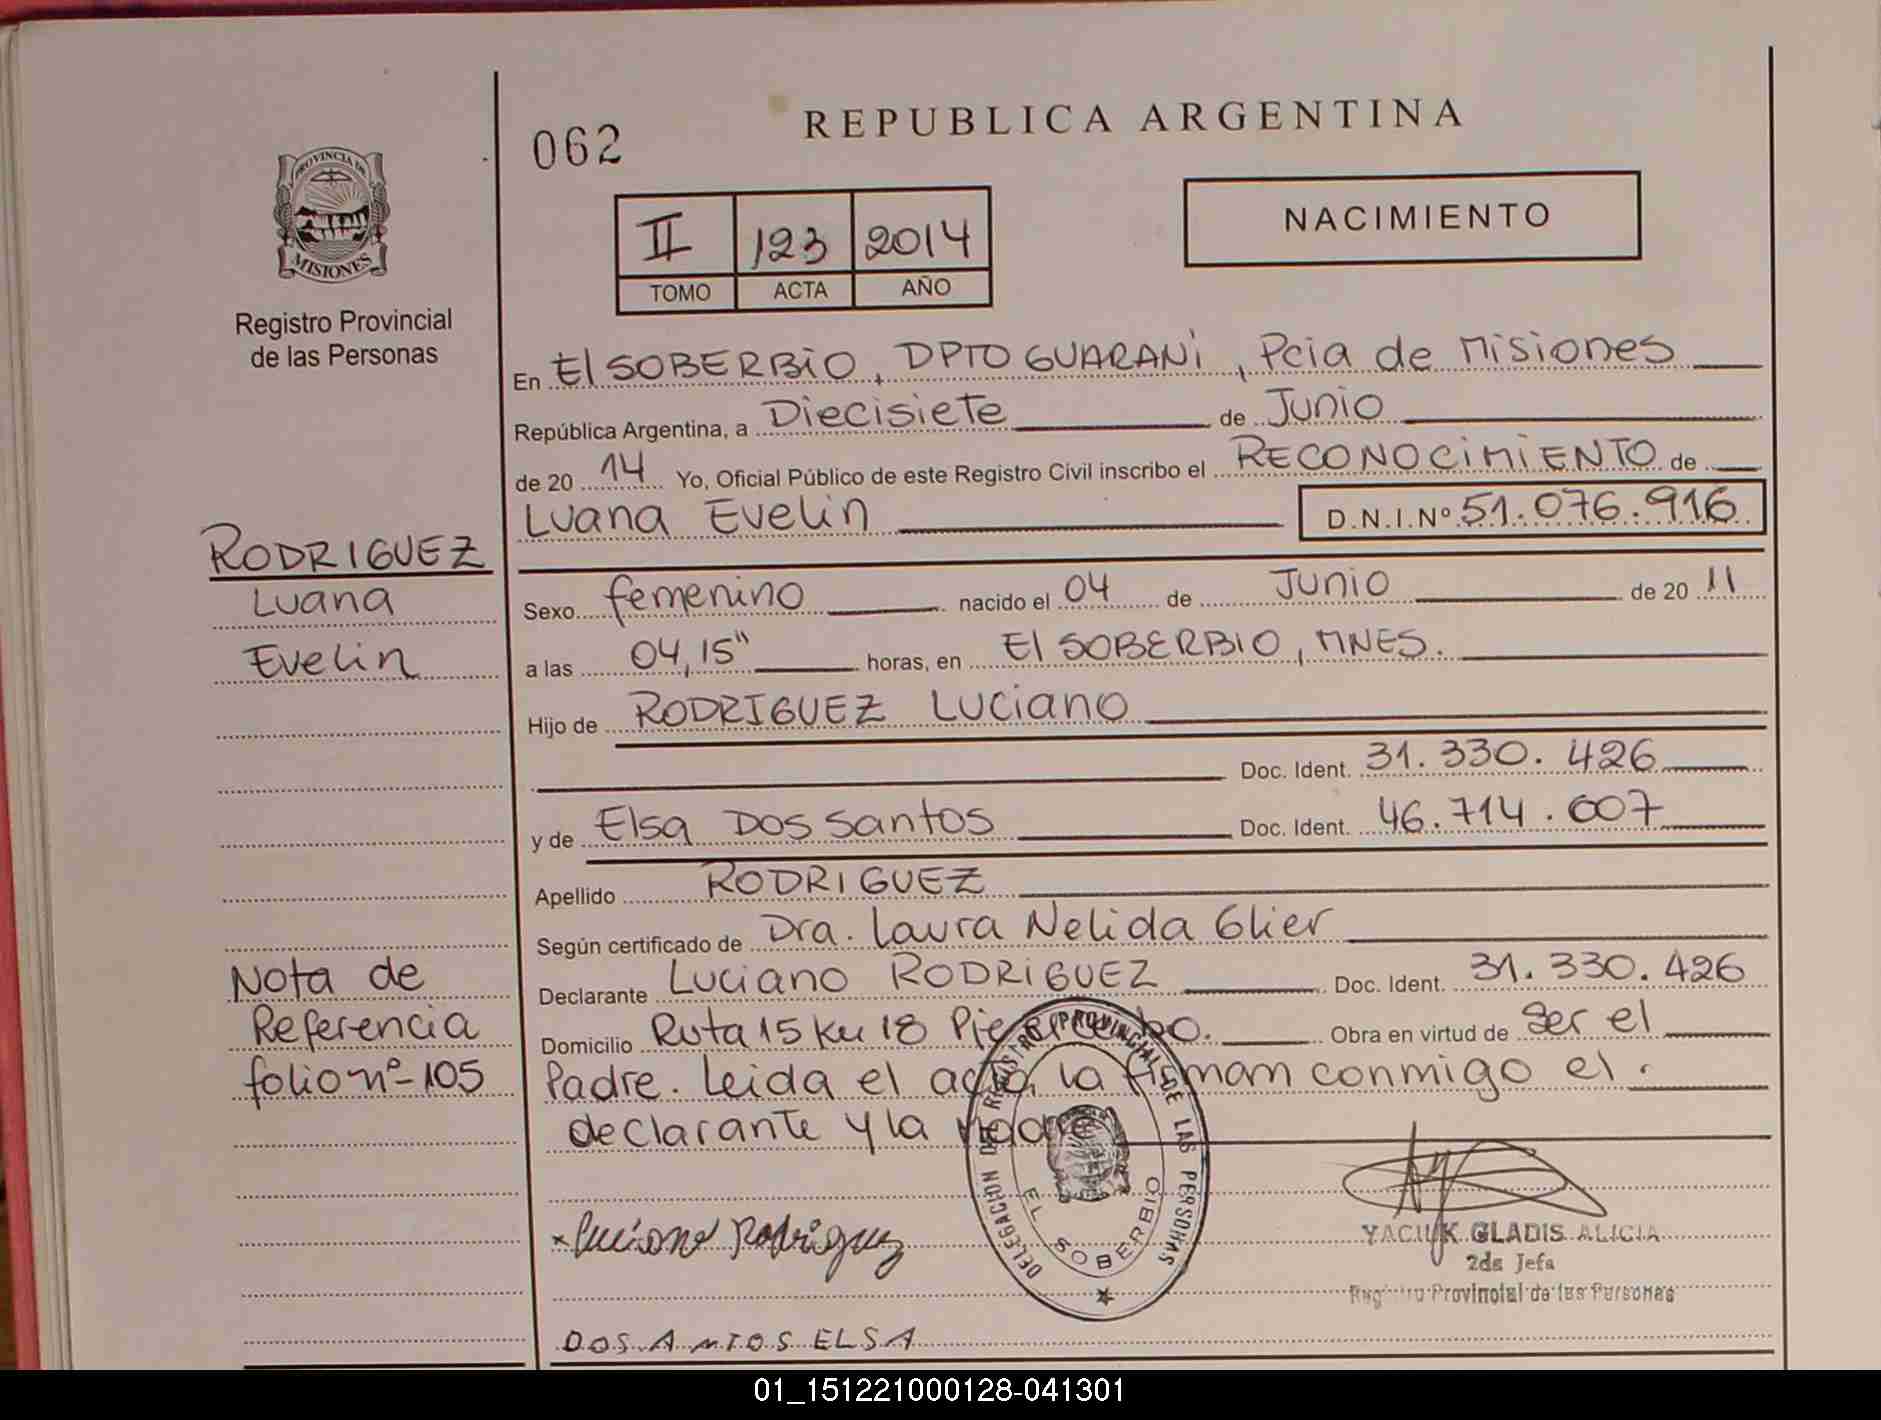 062
REPUBLICA ARGENTINA
PROVINCIA DE
MISIONES
Registro Provincial
de las Personas
II 123 2014
TOMO ACTA AÑO
NACIMIENTO
En El SOBERBIO, DPTO GUARANI, Pcia de Misiones
República Argentina, a Diecisiete de Junio
de 20 14 Yo, Oficial Público de este Registro Civil inscribo el RECONOCIMIENTO de
Luana Evelin D.N.I.Nº 51.076.916
RODRIGUEZ
Luana
Evelin
Sexo femenino nacido el 04 de Junio de 20 11
a las 04,15" horas, en El SOBERBIO, MNES.
Hijo de RODRIGUEZ Luciano
Doc. Ident. 31.330.426
y de Elsa DOS Santos Doc. Ident. 46.714.007
Apellido RODRIGUEZ
Según certificado de Dra. Laura Nelida Glier
Declarante Luciano RODRIGUEZ Doc. Ident. 31.330.426
Domicilio Ruta 15 Km 18 Obra en virtud de Ser el
Padre. Leida el acta, la firman conmigo el
declarante y la Madre
Nota de
Referencia
folio nº-105
DELEGACION DEL REGISTRO PROVINCIAL DE LAS PERSONAS
EL SOBERBIO
Luciano Rodriguez
YACIUK GLADIS ALICIA
2da Jefa
Registro Provincial de las Personas
DOS AMTOS ELSA
01_151221000128-041301